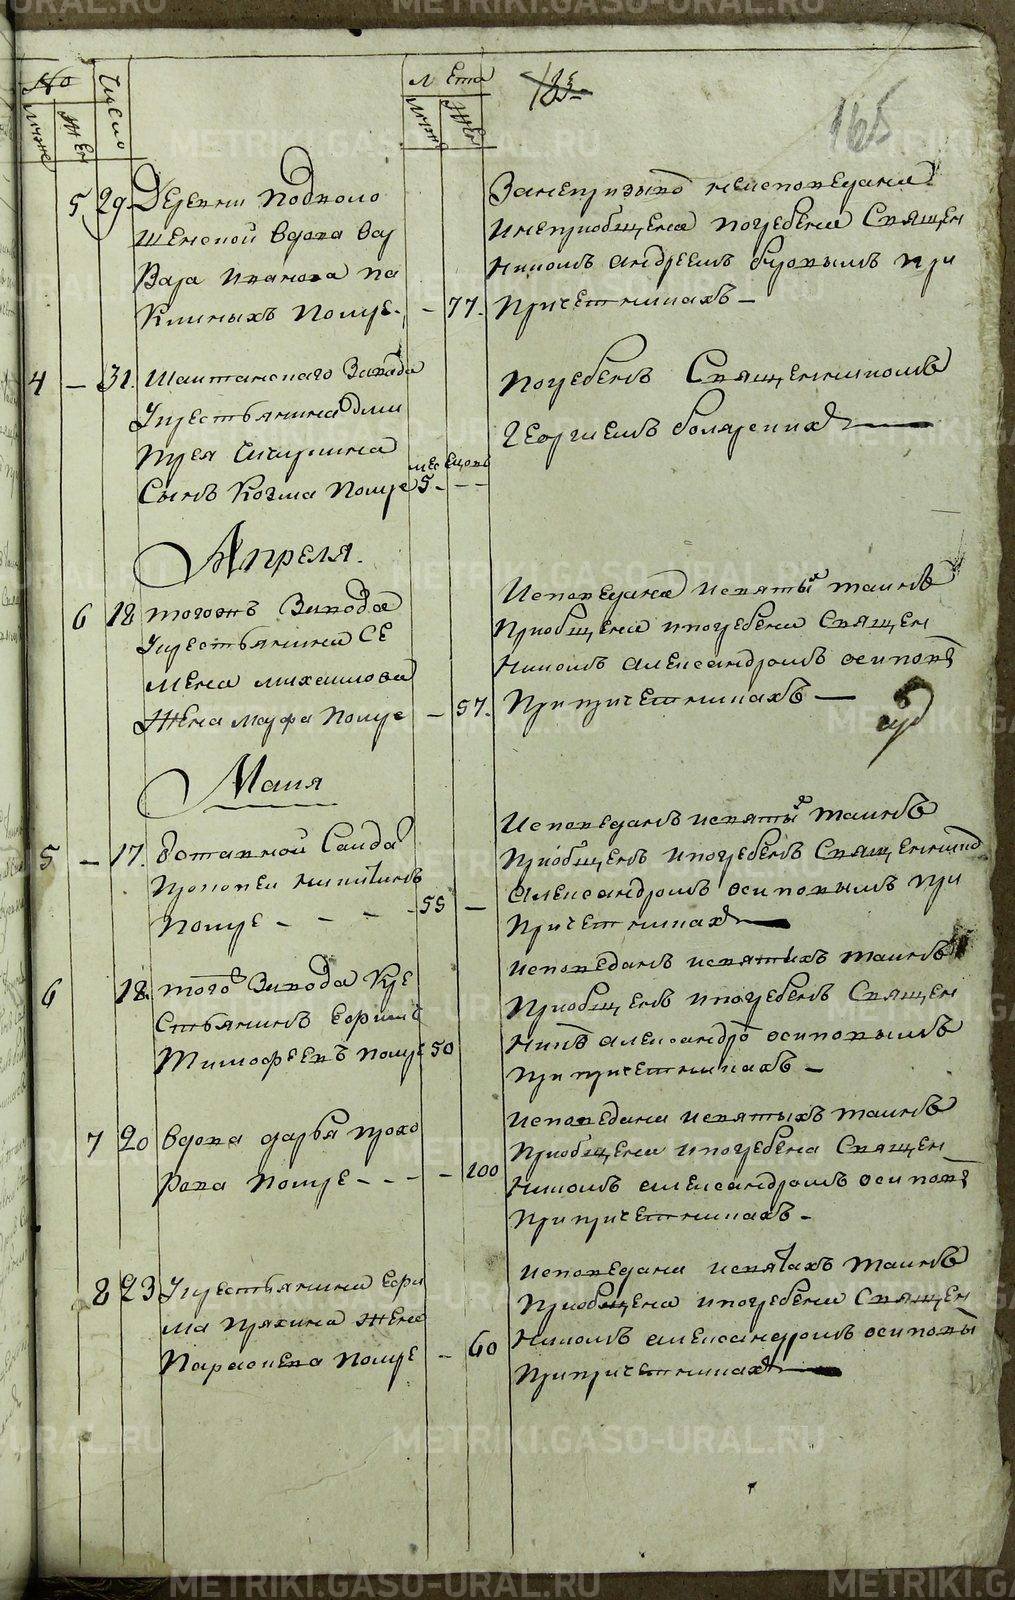 METRIKI.GASO-URAL.RU
No
Число
Лета
мужс
жен
мужс
жен
165
5 29. Деревни Подволо
шенской вдова Вар
вара Иванова Па
киныхъ помре. - 77.
Занепризывō неисповедана
инеприобщена погребена Священ
никомъ Андреемъ Буровымъ при
причетникахъ -
4 - 31. Шайтанскаго Завода
крестьянина Дми
трея
сынъ Козма помре 5 - -
месецовъ
погребенъ Священникомъ
Георгиемъ
Апреля.
6 18 тогожъ Завода
крестьянина Се
мена Михаилова
жена Марфа помре - 57.
Исповедана исвятых таинъ
приобщена ипогребена Священ
никомъ Александромъ Осиповы
припричетникахъ -
Маия
5 - 17. отставной Салда
Прокопеи Никитинъ
помре - - - 55 -
Исповеданъ исвятых таинъ
приобщенъ ипогребенъ Священнико
Александромъ Осиповымъ при
причетниках
6 18. того Завода кре
стьянинъ Ефимъ
Тимофеевъ помре 50
исповеданъ исвятыхъ таинъ
приобщенъ ипогребенъ Священ
никō Александрō Осиповымъ
припричетникахъ -
7 20 вдова Дарья Прохо
рова помре - - - - 100
исповедана исвятыхъ таинъ
приобщена ипогребена Священ
никомъ Александромъ Осиповы
припричетникахъ -
8 23 крестьянина Ефи
ма Пряхина жена
Парасиева помре - 60
исповедана исвятахъ таинъ
приобщена ипогребена Священ
никомъ Александромъ Осиповы
припричетниках
METRIKI.GASO-URAL.RU